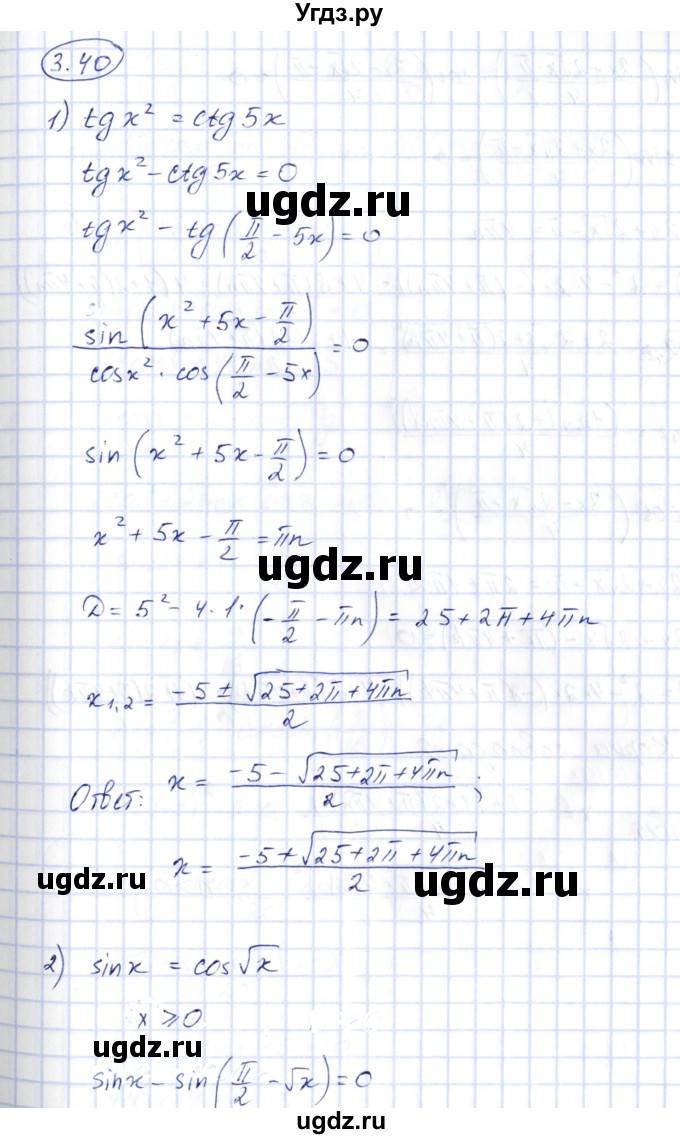 Угдз.ру
3.40
1) tg x² = ctg 5x
tg x² - ctg 5x = 0
ugdz.ru
tg x² - tg(π/2 - 5x) = 0
sin(x² + 5x - π/2) / (cos x² · cos(π/2 - 5x)) = 0
ugdz.ru
sin(x² + 5x - π/2) = 0
x² + 5x - π/2 = πn
ugdz.ru
D = 5² - 4 · 1 · (-π/2 - πn) = 25 + 2π + 4πn
x₁,₂ = (-5 ± √(25 + 2π + 4πn)) / 2
ugdz.ru
Ответ: x = (-5 - √(25 + 2π + 4πn)) / 2 ;
x = (-5 + √(25 + 2π + 4πn)) / 2
ugdz.ru
ugdz.ru
2) sin x = cos √x
x ⩾ 0
ugdz.ru
ugdz.ru
sin x - sin(π/2 - √x) = 0
ugdz.ru
ugdz.ru